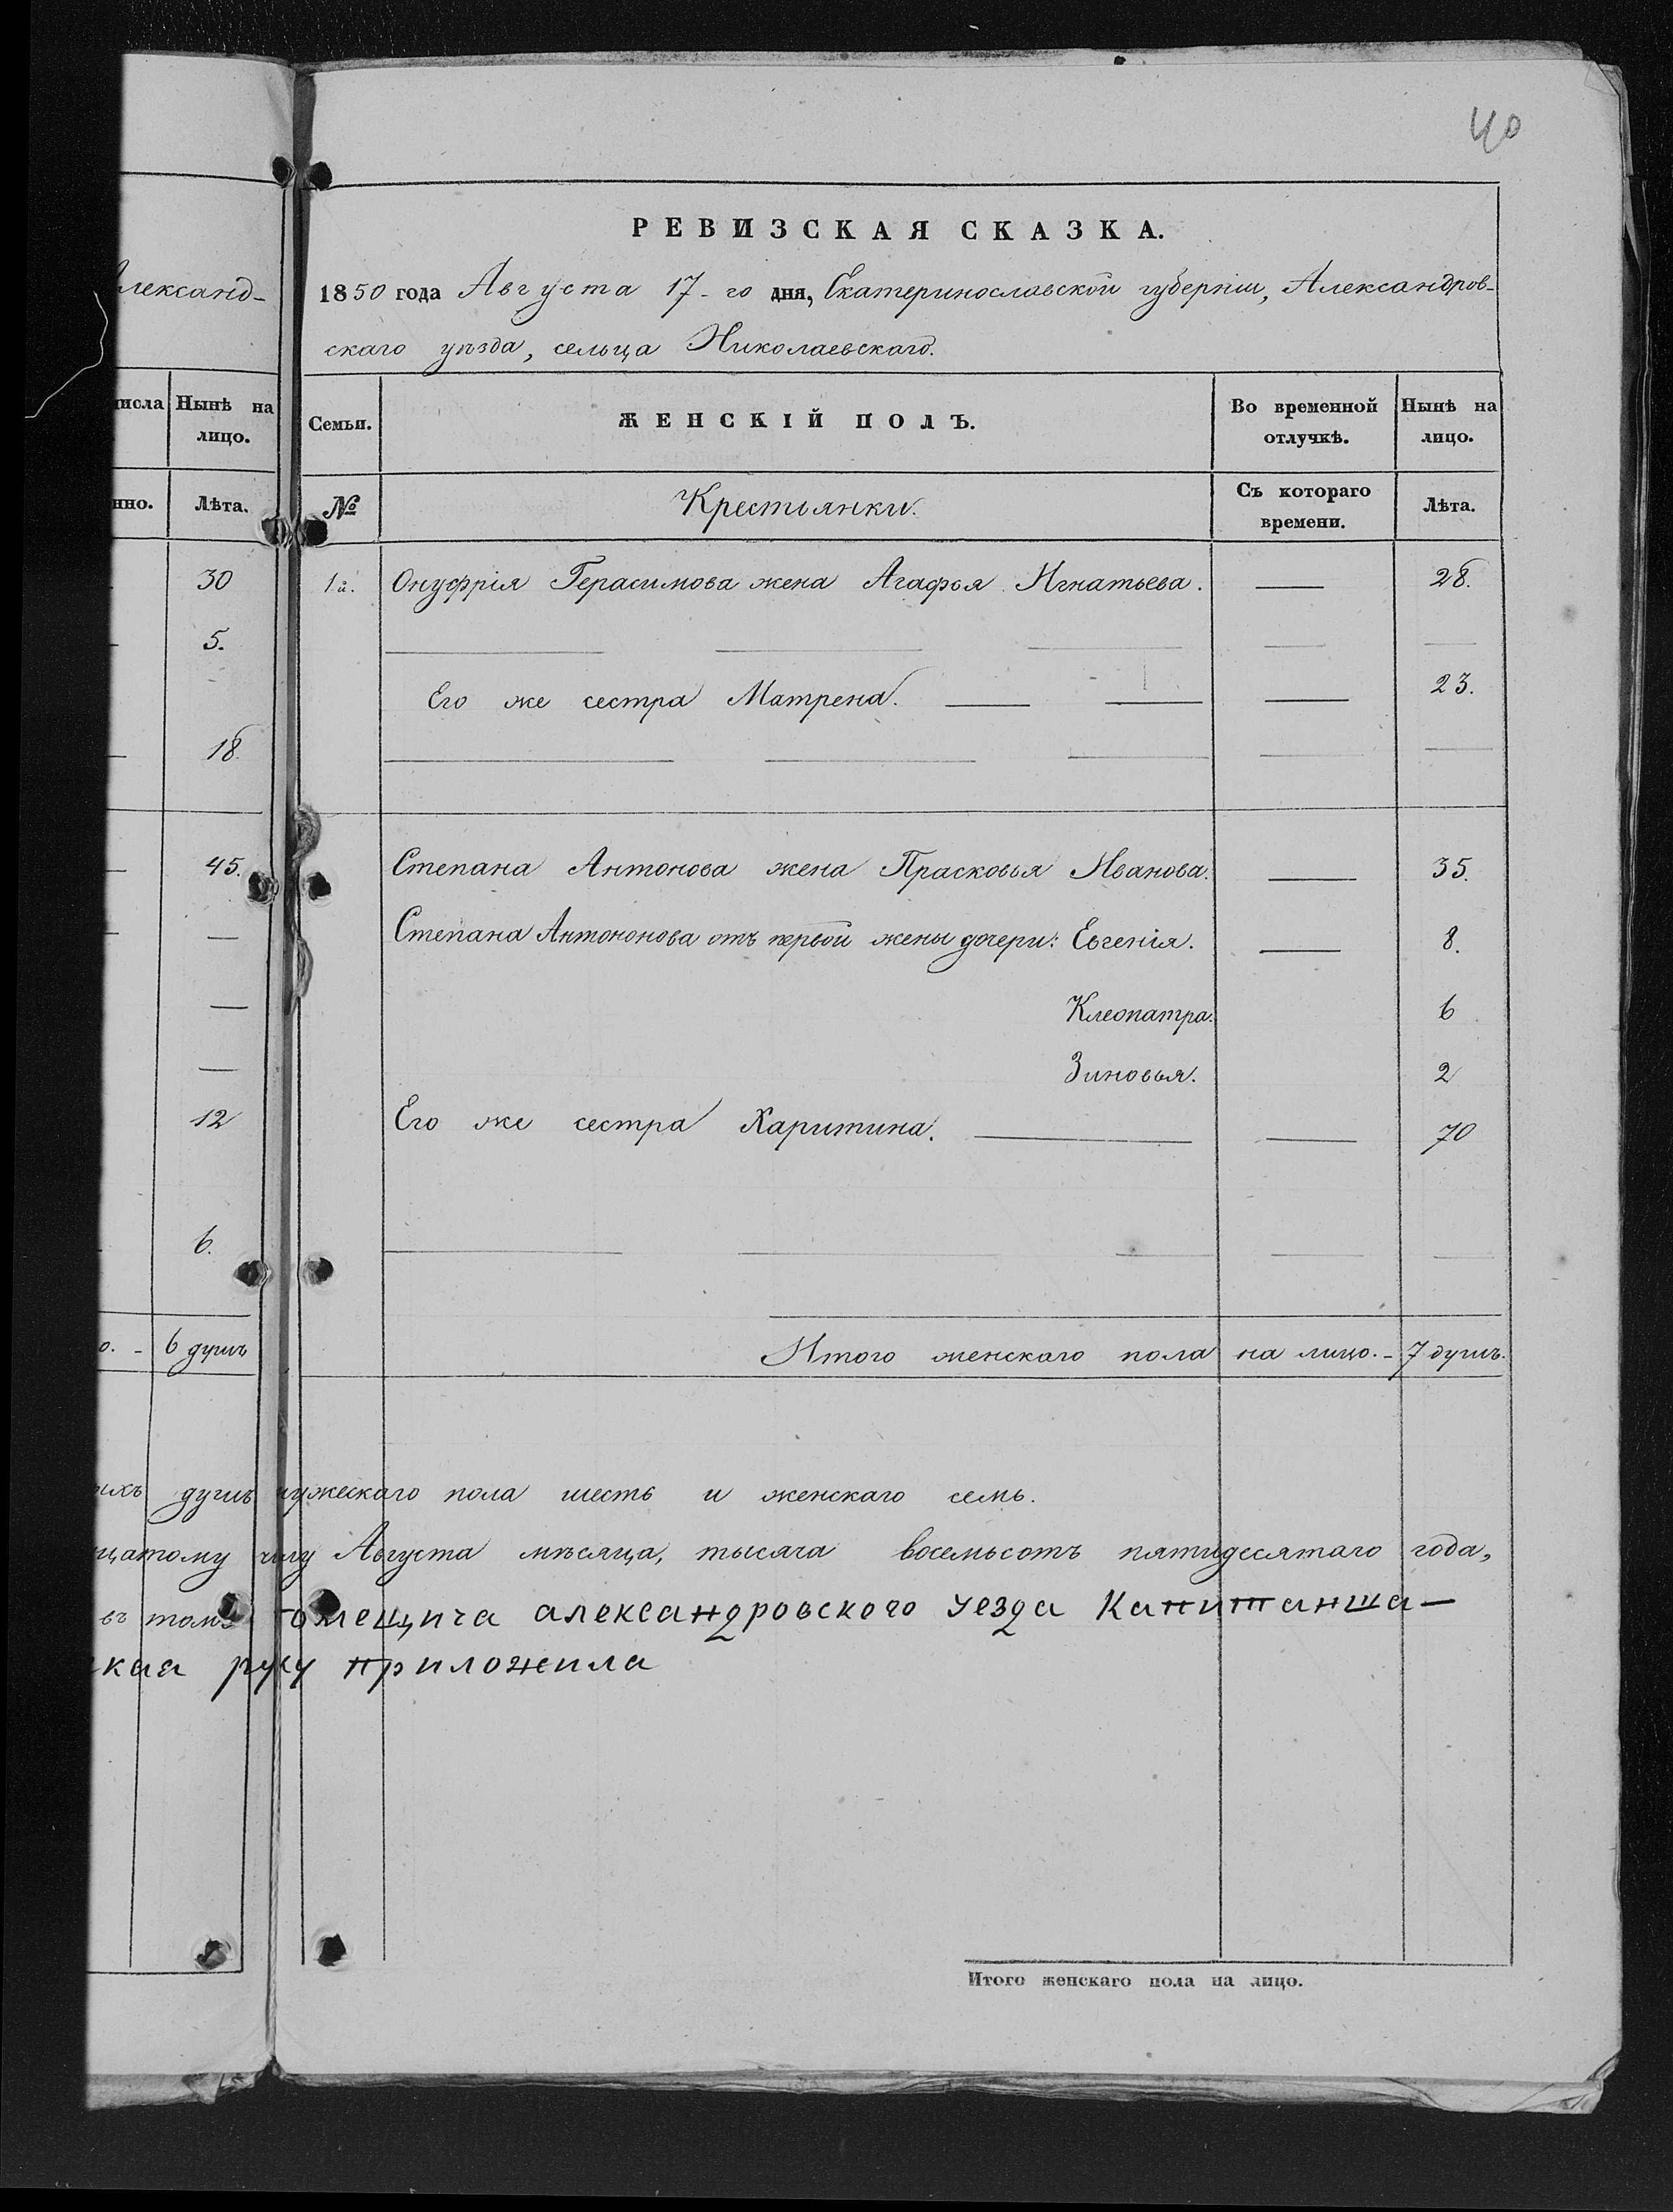 40
РЕВИЗСКАЯ СКАЗКА.
лександ-
1850 года Августа 17-го дня, Екатеринославской губерніи, Александров-
скаго уѣзда, сельца Николаевскаго.
числа Нынѣ на лицо.
Семьи. ЖЕНСКІЙ ПОЛЪ. Во временной отлучкѣ. Нынѣ на лицо.
нно. Лѣта.
№ Крестьянки. Съ котораго времени. Лѣта.
30 1й. Онуфрія Герасимова жена Агафья Игнатьева. — 28.
5.
Его же сестра Матрена. — — — 23.
18.
45. Степана Антонова жена Прасковья Иванова. — 35.
— Степана Антононова отъ первой жены дочери: Евгенія. — 8.
— Клеопатра. 6
— Зиновья. 2
12 Его же сестра Харитина. — — 70
6.
о. - 6 душъ Итого женскаго пола на лицо. - 7 душъ.
ихъ душъ мужескаго пола шесть и женскаго семь.
цатому числу Августа мѣсяца, тысяча восемьсотъ пятидесятаго года,
въ томъ помещича александровского уезда Капитанша-
кая руку приложила
Итого женскаго пола на лицо.